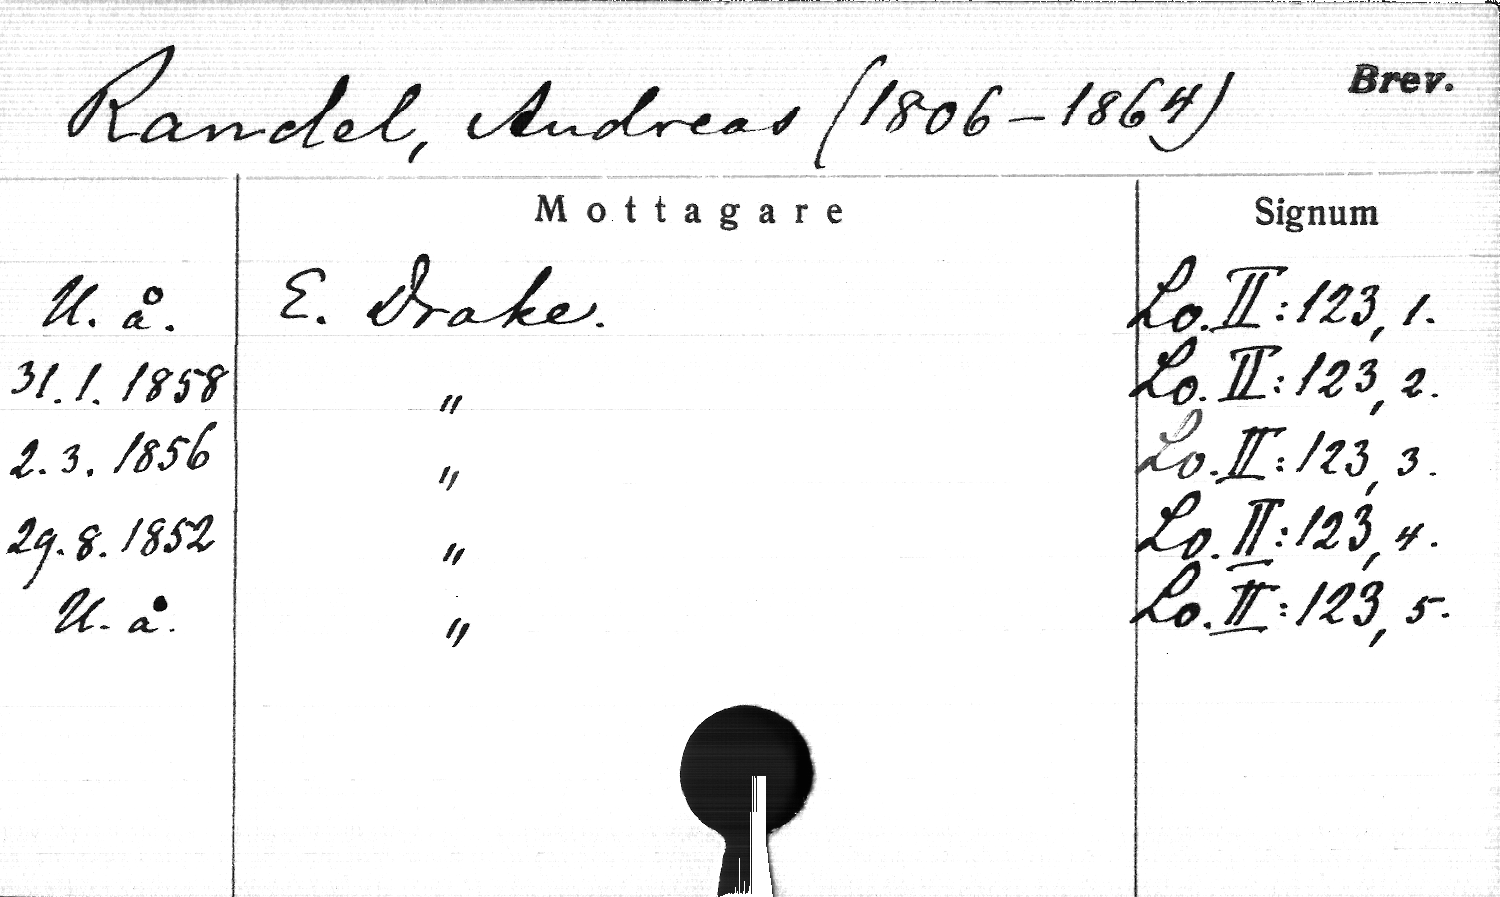 Randel, Andreas (1806–1864) Brev.
Mottagare Signum
U. å. E. Drake. Lo. II:123, 1.
31. 1. 1858 " Lo. II:123, 2.
2. 3. 1856 " Lo. II:123, 3.
29. 8. 1852 " Lo. II:123, 4.
U. å. " Lo. II:123, 5.